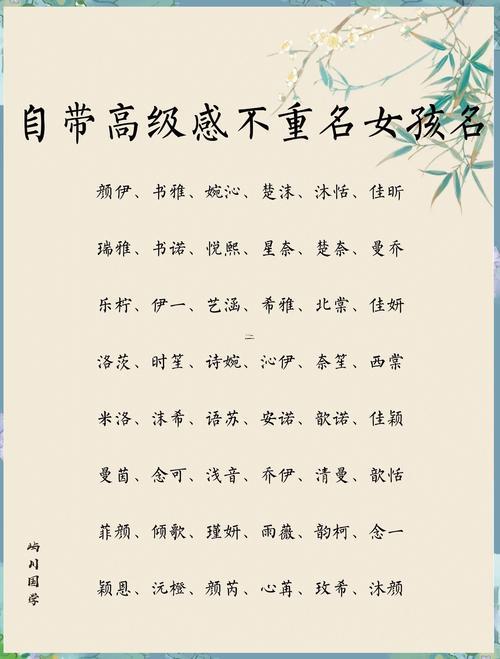 自带高级感不重名女孩名
颜伊、书雅、婉沁、楚沫、沐恬、佳昕
瑞雅、书诺、悦熙、星奈、楚奈、曼乔
乐柠、伊一、艺涵、希雅、北棠、佳妍
二
洛茨、时笙、诗婉、沁伊、奈笙、西棠
米洛、沫希、语苏、安诺、歆诺、佳颖
曼茵、念可、浅音、乔伊、清曼、歆恬
菲颜、倾歌、瑾妍、雨薇、韵柯、念一
颖恩、沅橙、颜芮、心苒、玫希、沐颜
屿川国学